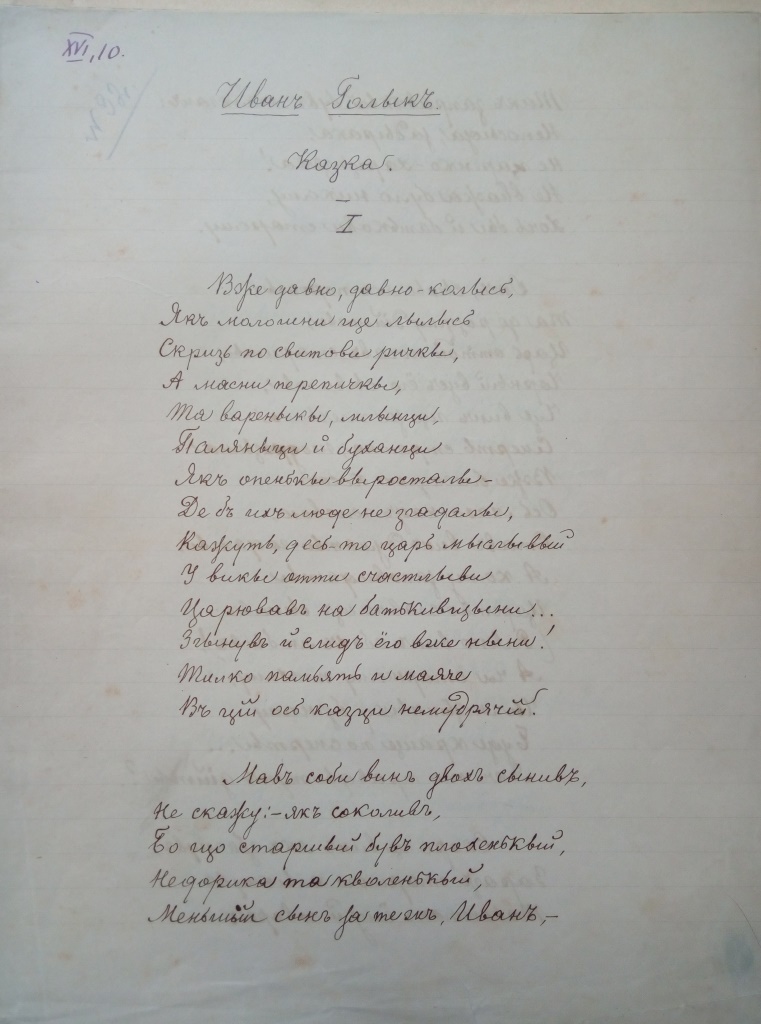 XVI, 10.
Иванъ Голыкъ.
Казка.
I
Вже давно, давно-колысь,
Якъ молошни ще лылысь
Скризь по свитови ричкы,
А масни перепичкы,
Та вареныкы, млынци,
Паляныци й буханци
Якъ опенькы выросталы –
Де бъ ихъ люде не згадалы,
Кажуть, десь-то царь мыслывый
У викы отти счастлыви
Царювавъ на батькивщыни...
Згынувъ й слидъ ёго вже ныни!
Тилко памъять и маяче
Въ цій ось казци немудрячій.
Мавъ соби винъ двохъ сынивъ,
Не скажу: – якъ соколивъ,
Бо що старшый бувъ плохенькый,
Недорика та кволенькый,
Меньшый сынъ за те жъ, Иванъ, –